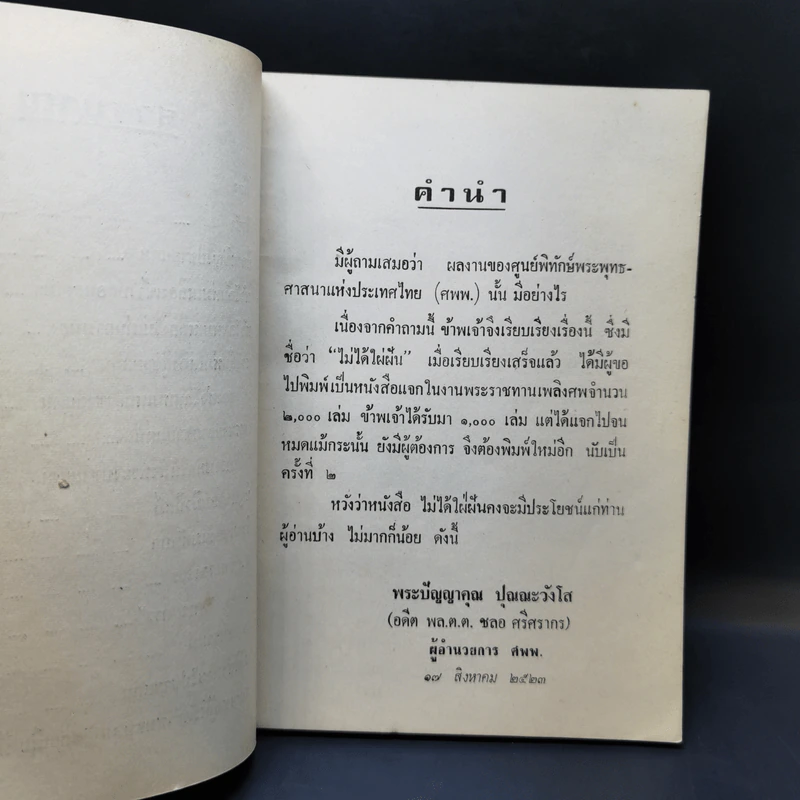 คำนำ
มีผู้ถามเสมอว่า ผลงานของศูนย์พิทักษ์พระพุทธ-
ศาสนาแห่งประเทศไทย (ศพพ.) นั้น มีอย่างไร
เนื่องจากคำถามนี้ ข้าพเจ้าจึงเรียบเรียงเรื่องนี้ ซึ่งมี
ชื่อว่า “ไม่ได้ใฝ่ฝัน” เมื่อเรียบเรียงเสร็จแล้ว ได้มีผู้ขอ
ไปพิมพ์เป็นหนังสือแจกในงานพระราชทานเพลิงศพจำนวน
๒,๐๐๐ เล่ม ข้าพเจ้าได้รับมา ๑,๐๐๐ เล่ม แต่ได้แจกไปจน
หมดแม้กระนั้น ยังมีผู้ต้องการ จึงต้องพิมพ์ใหม่อีก นับเป็น
ครั้งที่ ๒
หวังว่าหนังสือ ไม่ได้ใฝ่ฝันคงจะมีประโยชน์แก่ท่าน
ผู้อ่านบ้าง ไม่มากก็น้อย ดังนี้
พระปัญญาคุณ ปุณณะวังโส
(อดีต พล.ต.ต. ชลอ ศรีศรากร)
ผู้อำนวยการ ศพพ.
๑๗ สิงหาคม ๒๕๒๓